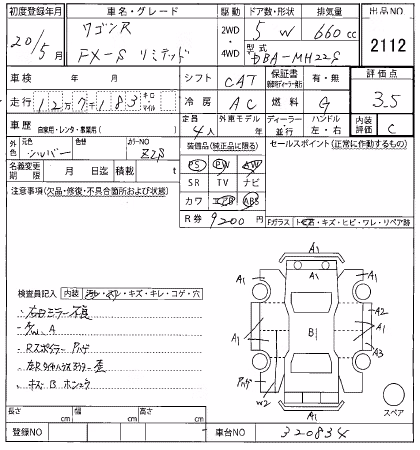 初度登録年月 車名・グレード 駆動 ドア数・形状 排気量 出品NO
20/5月 ワゴンR 2WD・4WD 5 W 660cc 2112
FX-S リミテッド 型式 DBA-MH22S
車検 年 月 シフト CAT 保証書 有・無 評価点
走行 12万7千183 キロ・マイル 冷房 AC 燃料 G 3.5
車歴 自家用・レンタ・事業用( ) 定員 4人 外車モデル 年 ディーラー・並行 ハンドル 左・右 内装評価 C
外色 元色 シルバー 色替 カラーNO Z2S 装備品(純正品に限る) セールスポイント(正常に作動するもの)
名義変更期限 月 日迄 積載 t PS PW AW
SR TV ナビ
注意事項(欠品・修復・不具合箇所および状態) カワ エアB ABS
R券 9200円 Fガラス トビ石・キズ・ヒビ・ワレ・リペア跡
検査員記入 内装 汚レ・スレ・キズ・キレ・コゲ・穴
・右ミラー不良
・A
・Rスポイラー アハゲ
・歪
・キズ B ホシュウ
A1
A1 A1
A1 B A2
A1 A3
アハゲ A1
W2 A1
スペア
長さ cm 幅 cm 高さ cm
登録NO 車台NO 320834